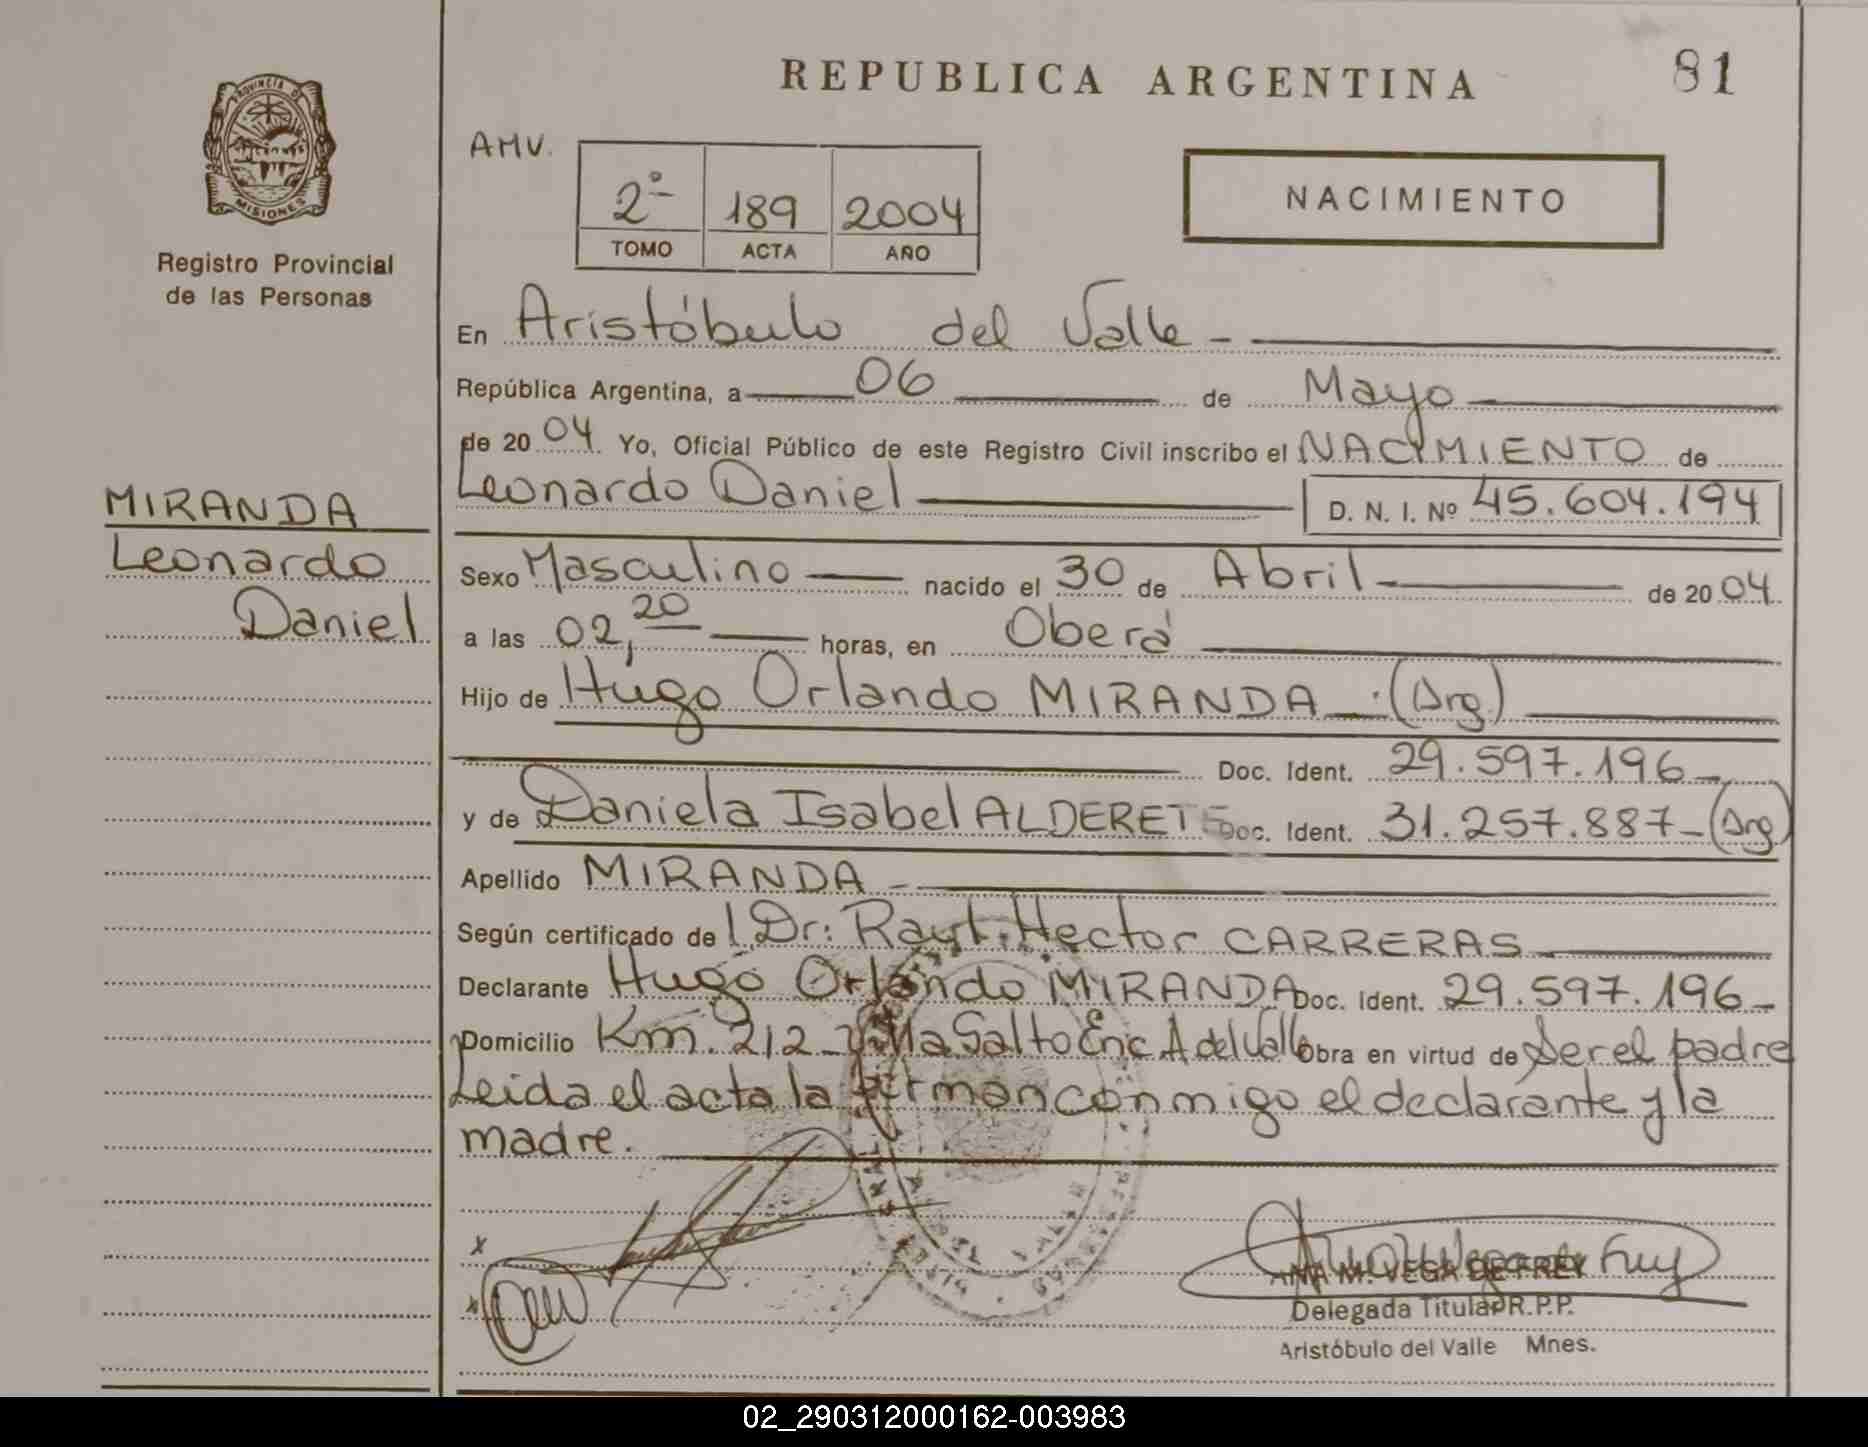 REPUBLICA ARGENTINA
81
PROVINCIA DE
MISIONES
Registro Provincial
de las Personas
AMV.
2º 189 2004
TOMO ACTA AÑO
NACIMIENTO
En Aristóbulo del Valle -
República Argentina, a 06 de Mayo
de 2004 Yo, Oficial Público de este Registro Civil inscribo el NACIMIENTO de
Leonardo Daniel D. N. I. Nº 45.604.194
MIRANDA
Leonardo
Daniel
Sexo Masculino nacido el 30 de Abril de 2004
a las 02,20 horas, en Oberá
Hijo de Hugo Orlando MIRANDA (Arg.)
Doc. Ident. 29.597.196
y de Daniela Isabel ALDERETE Doc. Ident. 31.257.887 - (Arg)
Apellido MIRANDA -
Según certificado de Dr: Hector CARRERAS
Declarante Hugo Orlando MIRANDA Doc. Ident. 29.597.196 -
Domicilio Km. 212 - Villa Salto Enc A del Valle Obra en virtud de Ser el padre
Leida el acta la firman conmigo el declarante y la
madre.
x
x
ANA M. VEGA DE FREY
Delegada Titular R.P.P.
Aristóbulo del Valle Mnes.
02_290312000162-003983